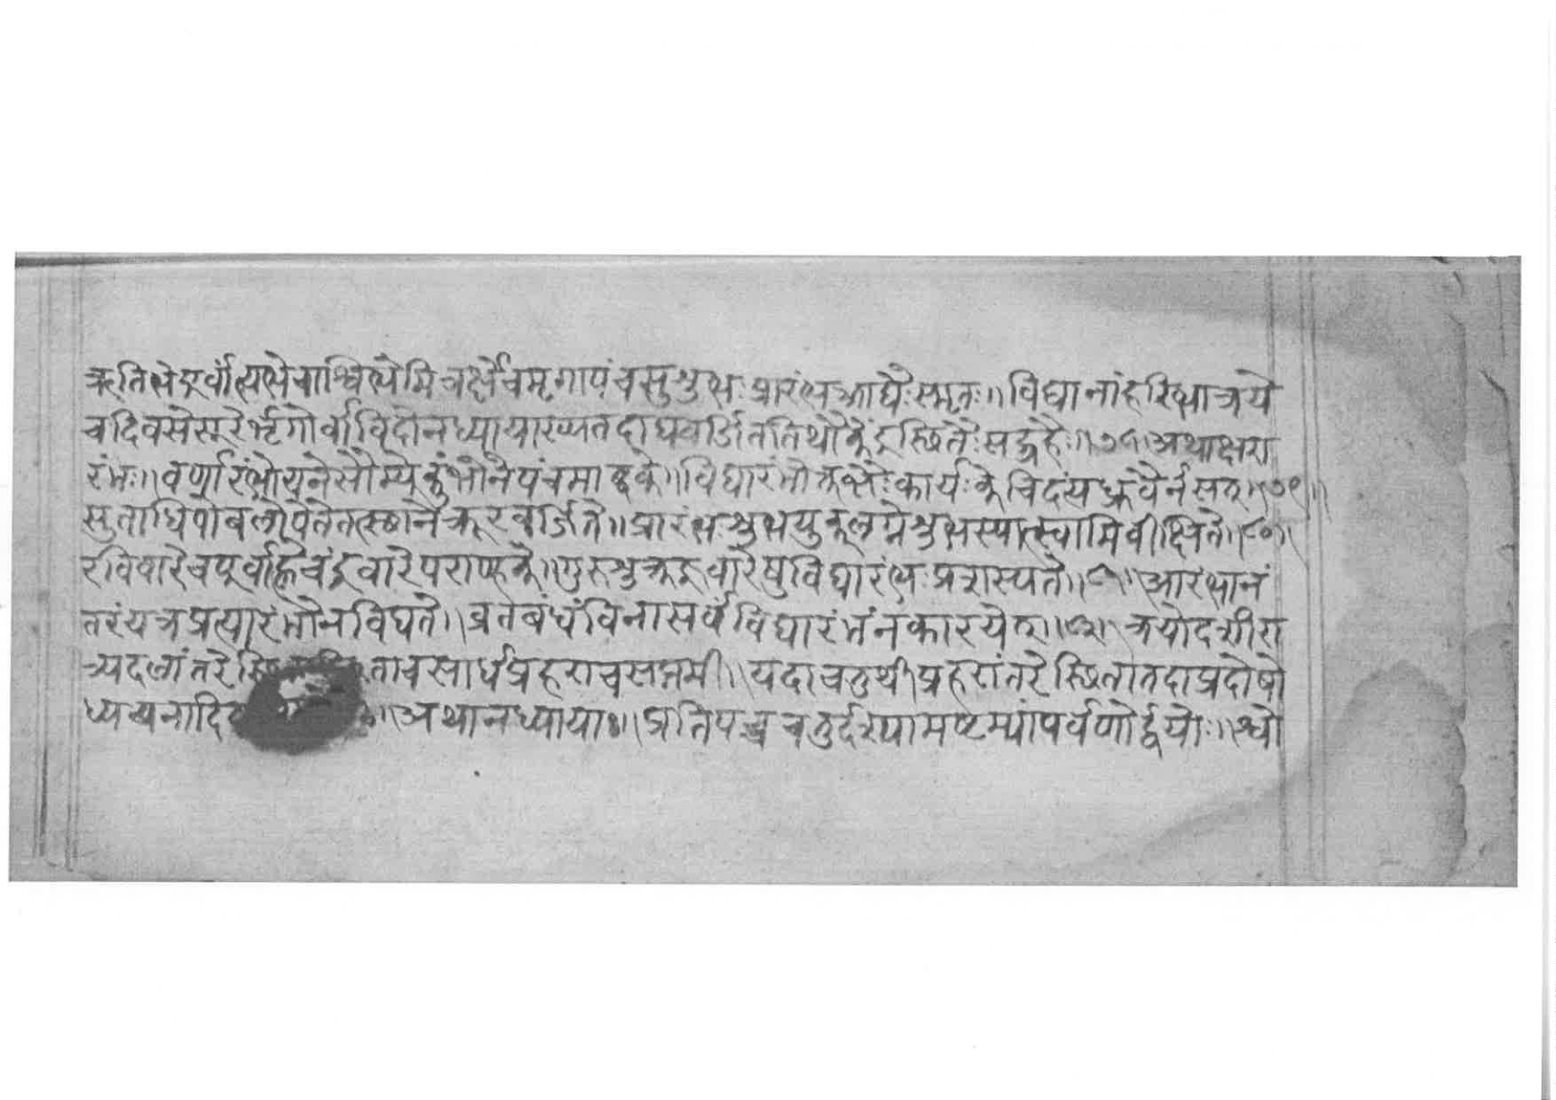 ऋतिभेदूर्वांत्यभेचाश्विभेमित्रर्क्षेचमृगापंचसुशुभः प्रारंभआद्यैःस्मृतः॥विद्यानांहरिभात्रये
चदिवसेसूरेर्भृगोर्वाविदोनध्यायाख्यतदाघवर्जिततिथौकेंद्रस्थितैःसद्ग्रहैः॥७८॥अथाक्षरा
रंभः॥वर्णारंभोयनेसौम्येकुंभोनेपंचमाब्दके॥विद्यारंभो कार्यःकेचिदंत्यध्रुवैर्नसत्॥७९॥
सुताधिपोबलोपेतेतत्स्थानेक्रूरवर्जिते॥प्रारंभःशुभयुक्लग्नेशुभस्यात्स्वामिवीक्षिते॥८०॥
रविवारेचपूर्वाह्णेचंद्रवारेपराण्हके॥गुरुशुक्रज्ञवारेषुविद्यारंभःप्रशस्यते॥८१॥आरंभानं
तरंयत्रप्रत्यारंभोनविद्यते॥व्रतबंधंविनासर्वंविद्यारंभंनकारयेत्॥८२॥त्रयोदशीरा
त्र्यदलांतरेस्थि ताचसार्धप्रहराचसप्तमी॥यदाचतुर्थीप्रहरांतरेस्थितातदाप्रदोषो
ध्ययनादि ॥अथानध्यायाः॥प्रतिपच्चचतुर्दश्यामष्टम्यांपर्वणोर्द्वयोः॥श्वो